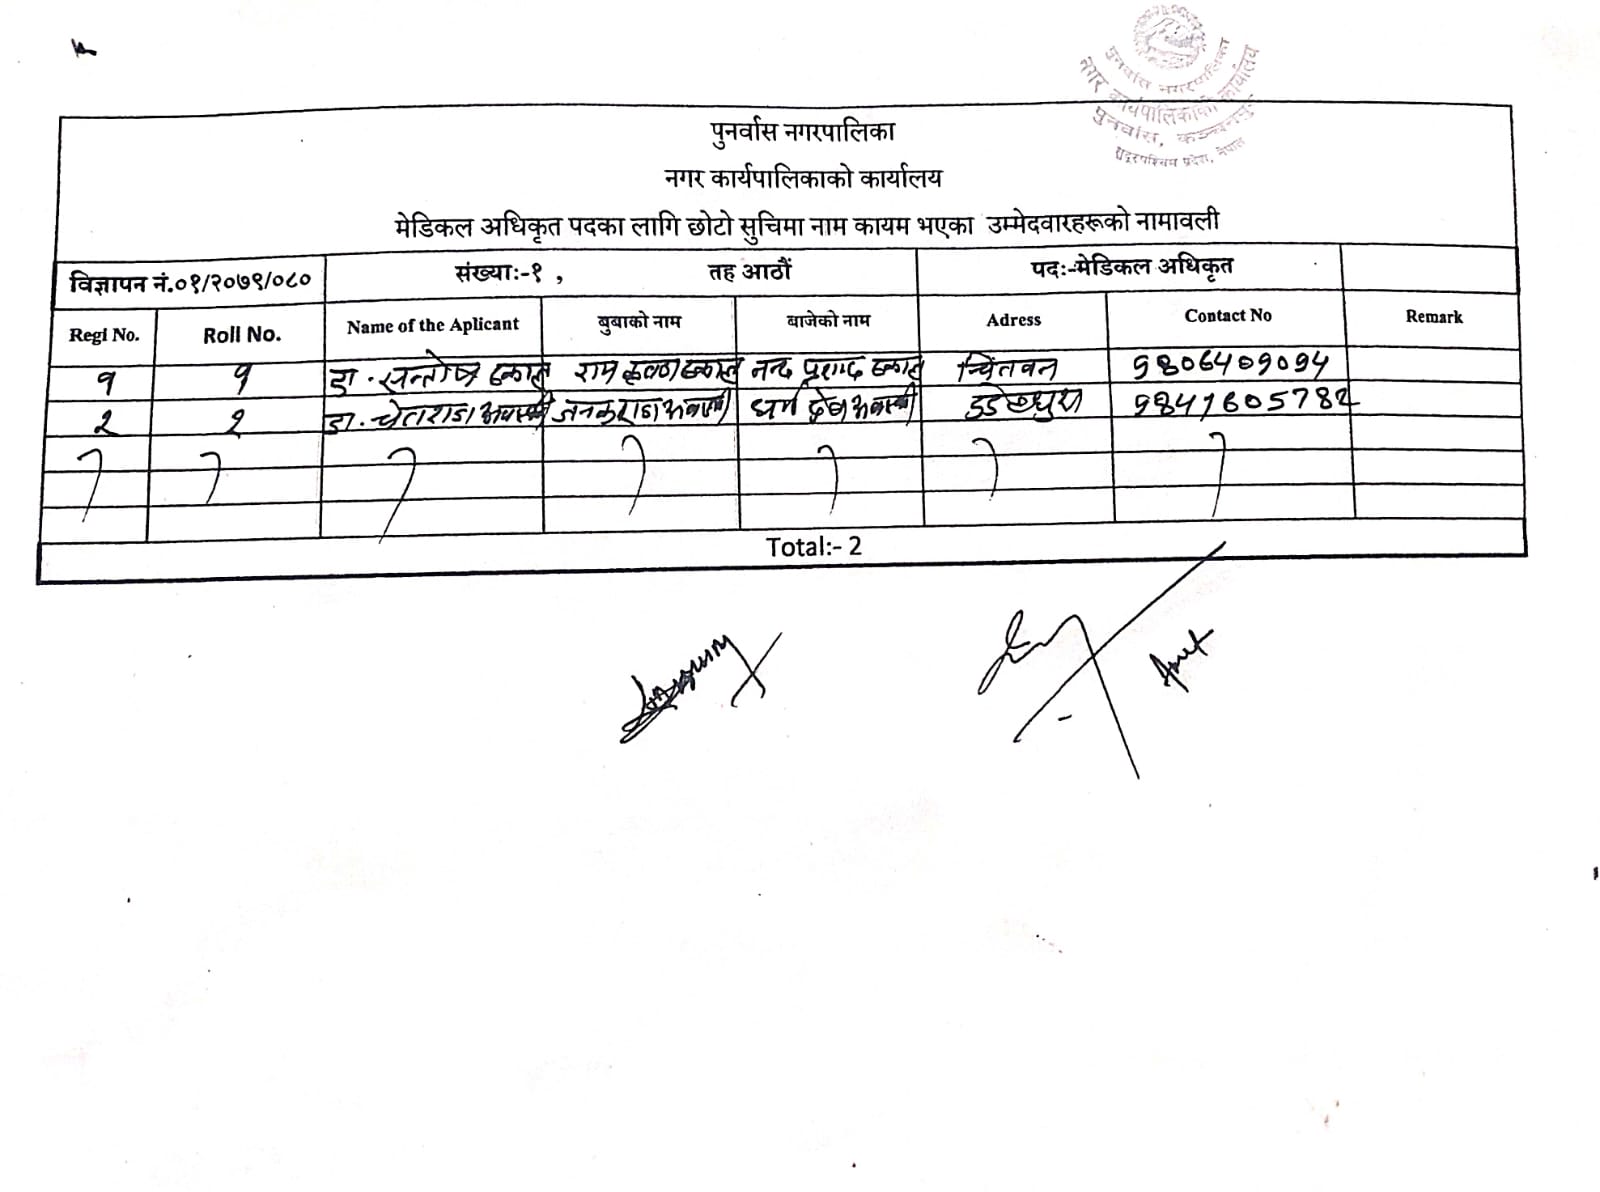 पुनर्वास नगरपालिका
नगर कार्यपालिकाको कार्यालय
पुनर्वास, कञ्चनपुर
सुदूरपश्चिम प्रदेश, नेपाल
पुनर्वास नगरपालिका
नगर कार्यपालिकाको कार्यालय
मेडिकल अधिकृत पदका लागि छोटो सुचिमा नाम कायम भएका उम्मेदवारहरूको नामावली
विज्ञापन नं.०१/२०७९/०८० संख्याः-१ , तह आठौं पदः-मेडिकल अधिकृत
Regi No. Roll No. Name of the Aplicant बुबाको नाम बाजेको नाम Adress Contact No Remark
१ १ डा. सन्तोष राम कृष्ण नन्द प्रसाद चितवन 9806409094
२ २ डा. चेतराज अवस्थी जनकराज अवस्थी धर्म देव अवस्थी डडेल्धुरा 9841605782
Total:- 2